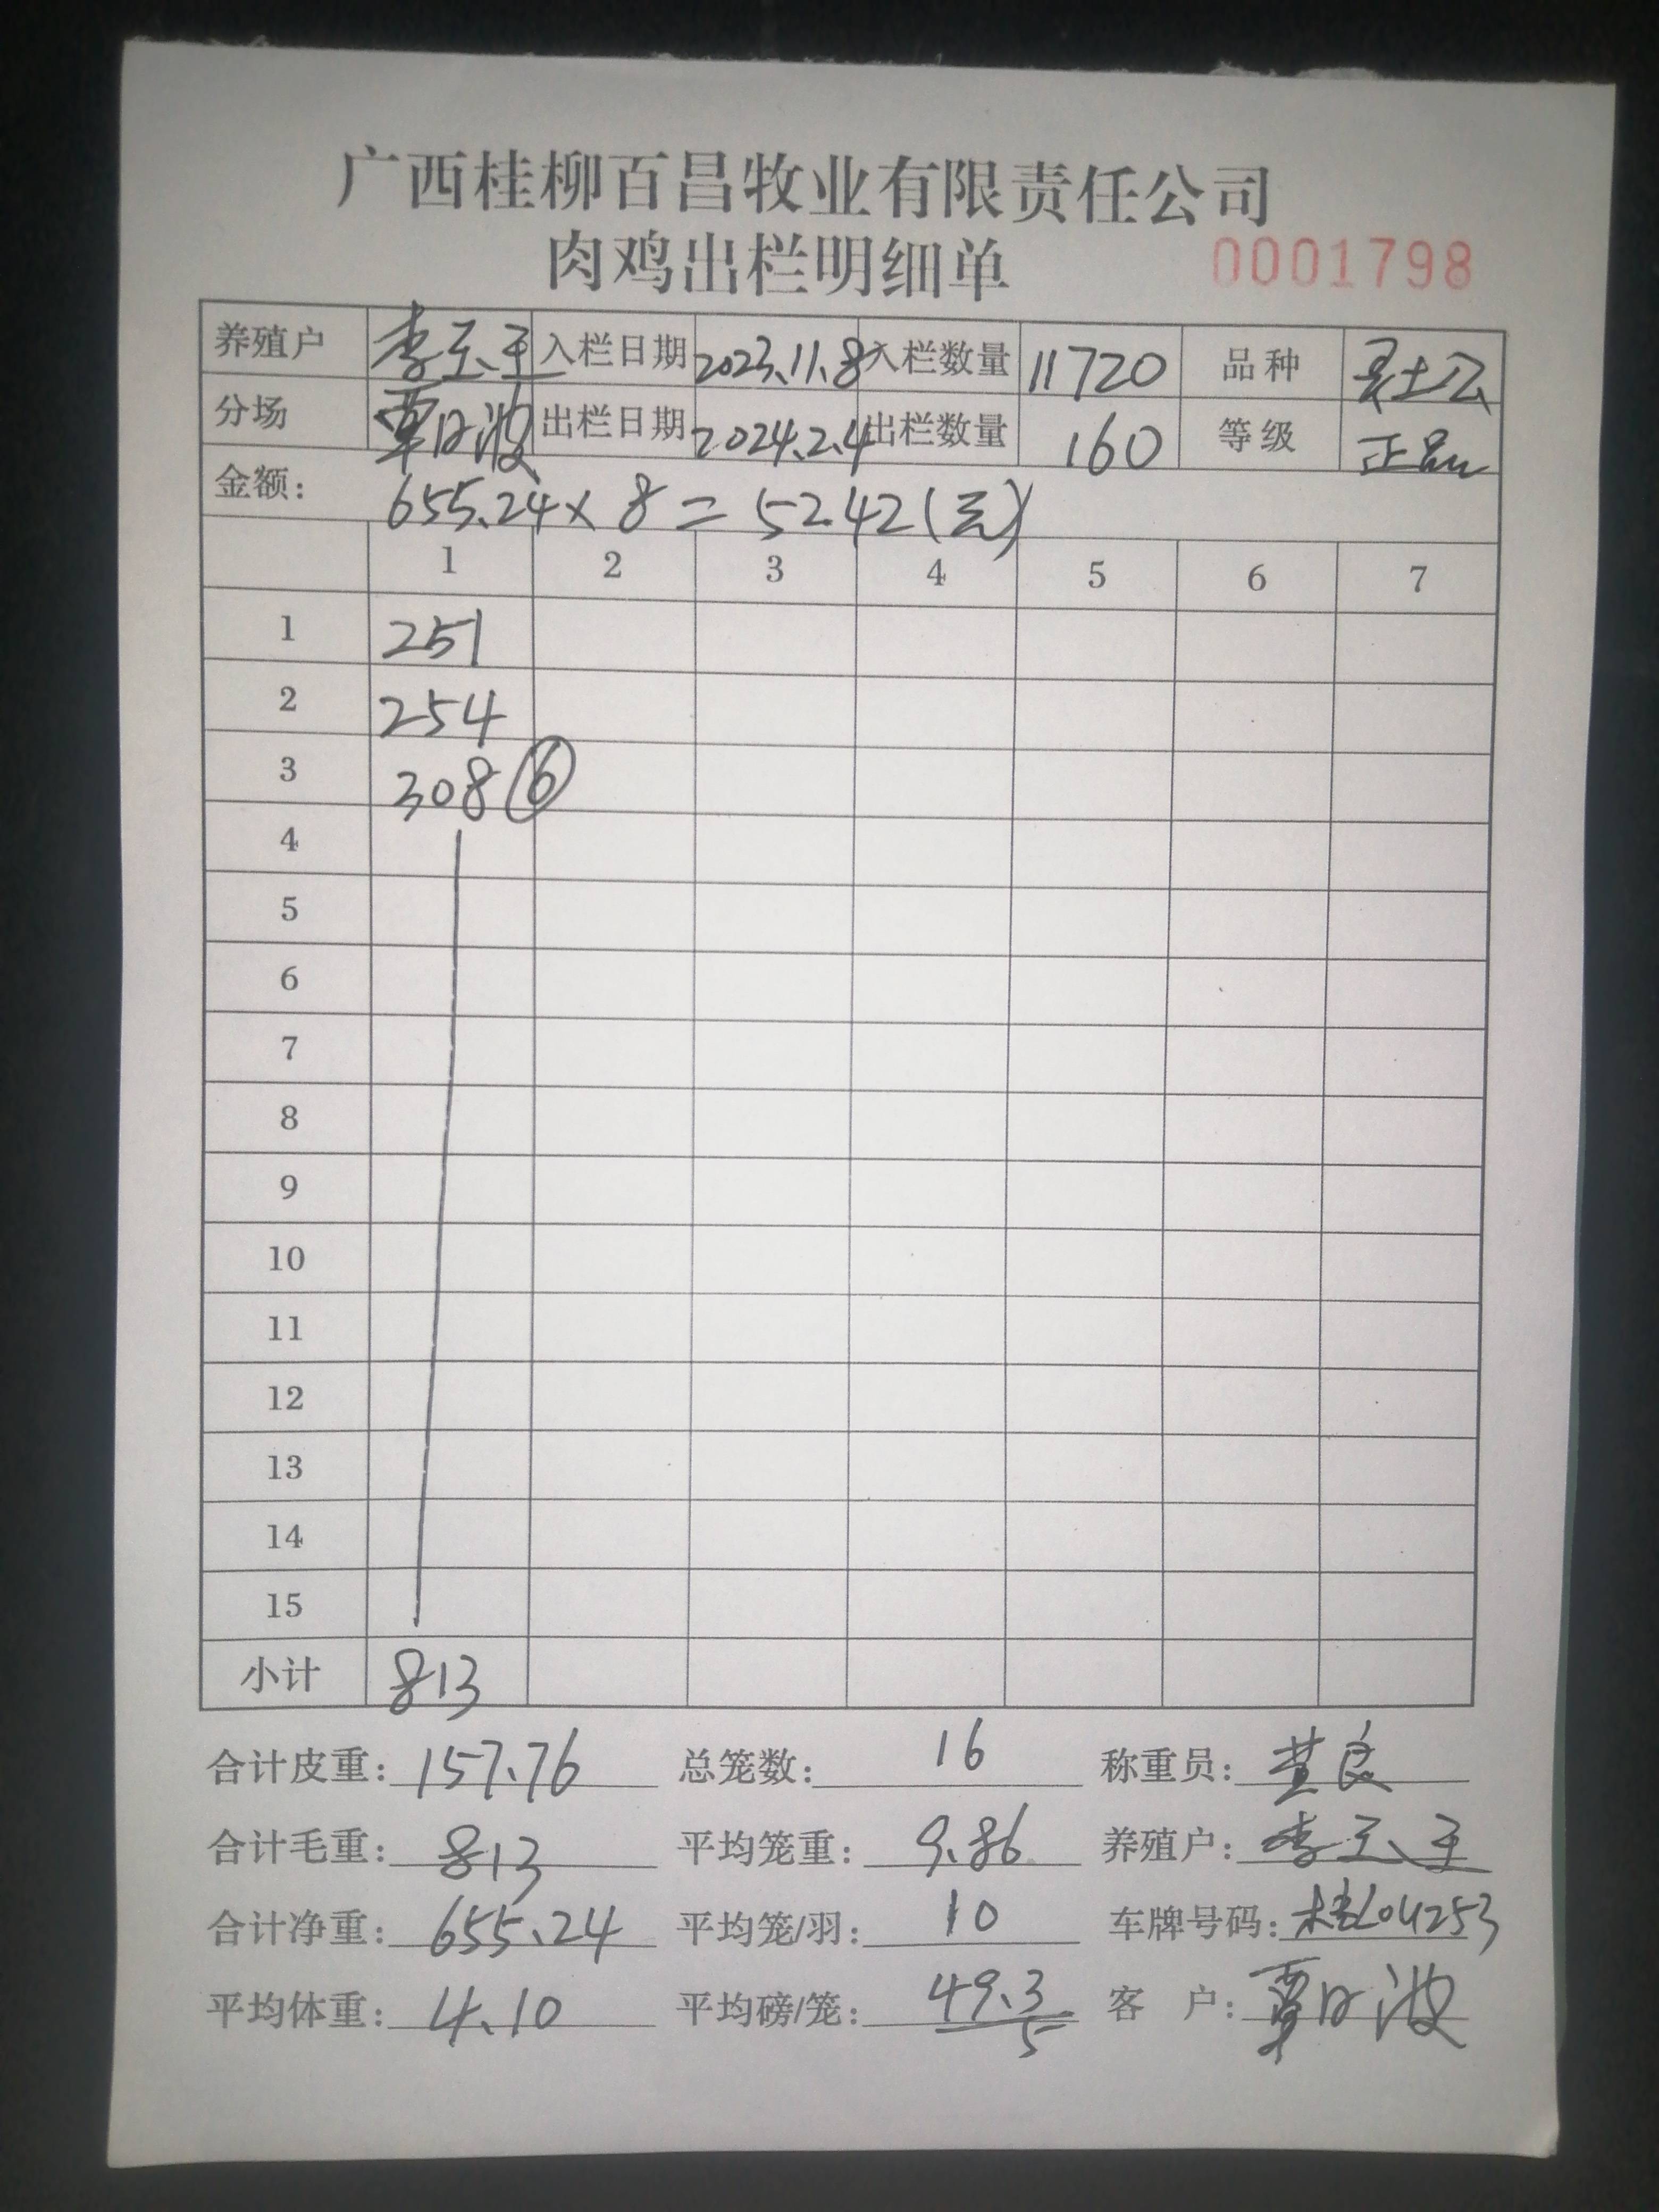 广西桂柳百昌牧业有限责任公司
肉鸡出栏明细单 0001798
养殖户 李玉玉 入栏日期 2023.11.8 入栏数量 11720 品种 灵土公
分场 覃日波 出栏日期 2024.2.4 出栏数量 160 等级 正品
金额: 655.24×8=5242(元)
1 2 3 4 5 6 7
1 251
2 254
3 308 ⑥
4
5
6
7
8
9
10
11
12
13
14
15
小计 813
合计皮重: 157.76 总笼数: 16 称重员:
合计毛重: 813 平均笼重: 9.86 养殖户: 李玉玉
合计净重: 655.24 平均笼/羽: 10 车牌号码: 桂L04253
平均体重: 4.10 平均磅/笼: 49.3 客户: 覃日波
5